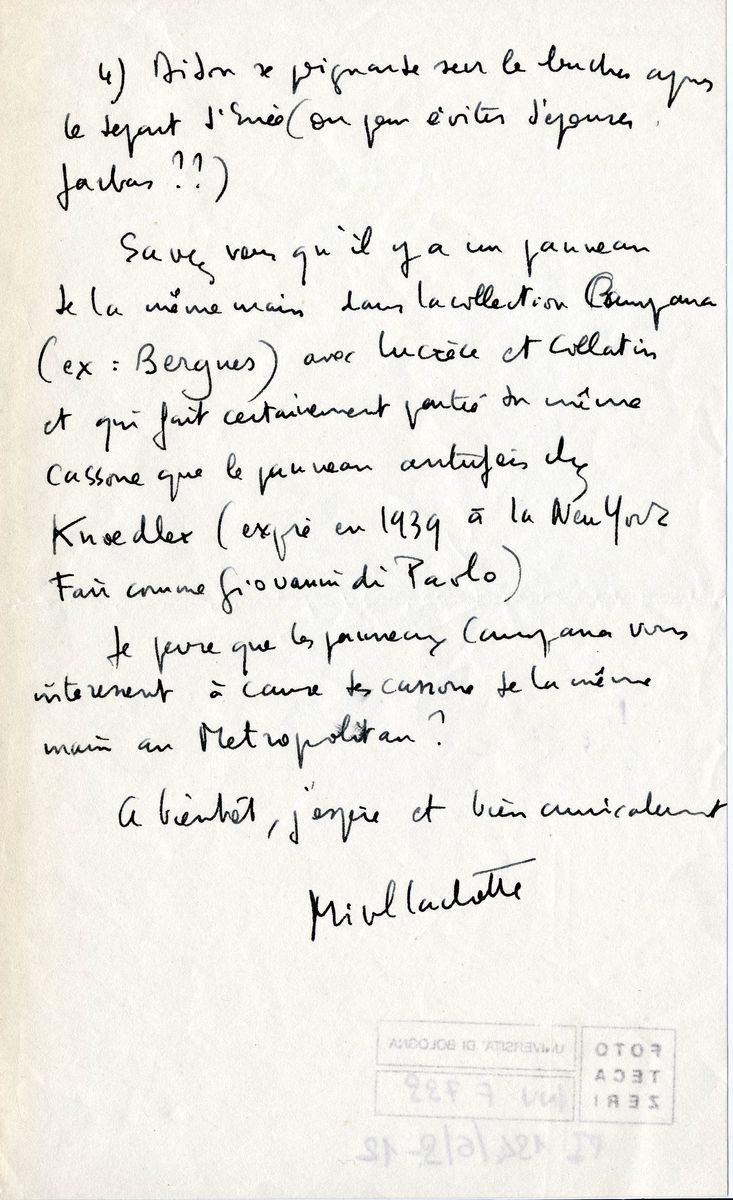 4) Didon se poignarde sur le bucher apres
le départ d'Enée (ou pour éviter d'épouser
Jarbas ??)
Savez vous qu'il y a un panneau
de la même main dans la collection Campana
(ex : Bergues) avec Lucrèce et Collatin
et qui fait certainement partie du même
cassone que le panneau autrefois chez
Knoedler (expé en 1939 à la New York
Fair comme Giovanni di Paolo)
Je pense que les panneaux Campana vous
interessent à cause des cassone de la même
main au Metropolitan ?
A bientôt, j'espère et bien amicalement
Michel Laclotte
FOTO
TECA
ZERI
UNIVERSITA' DI BOLOGNA
INV F 799